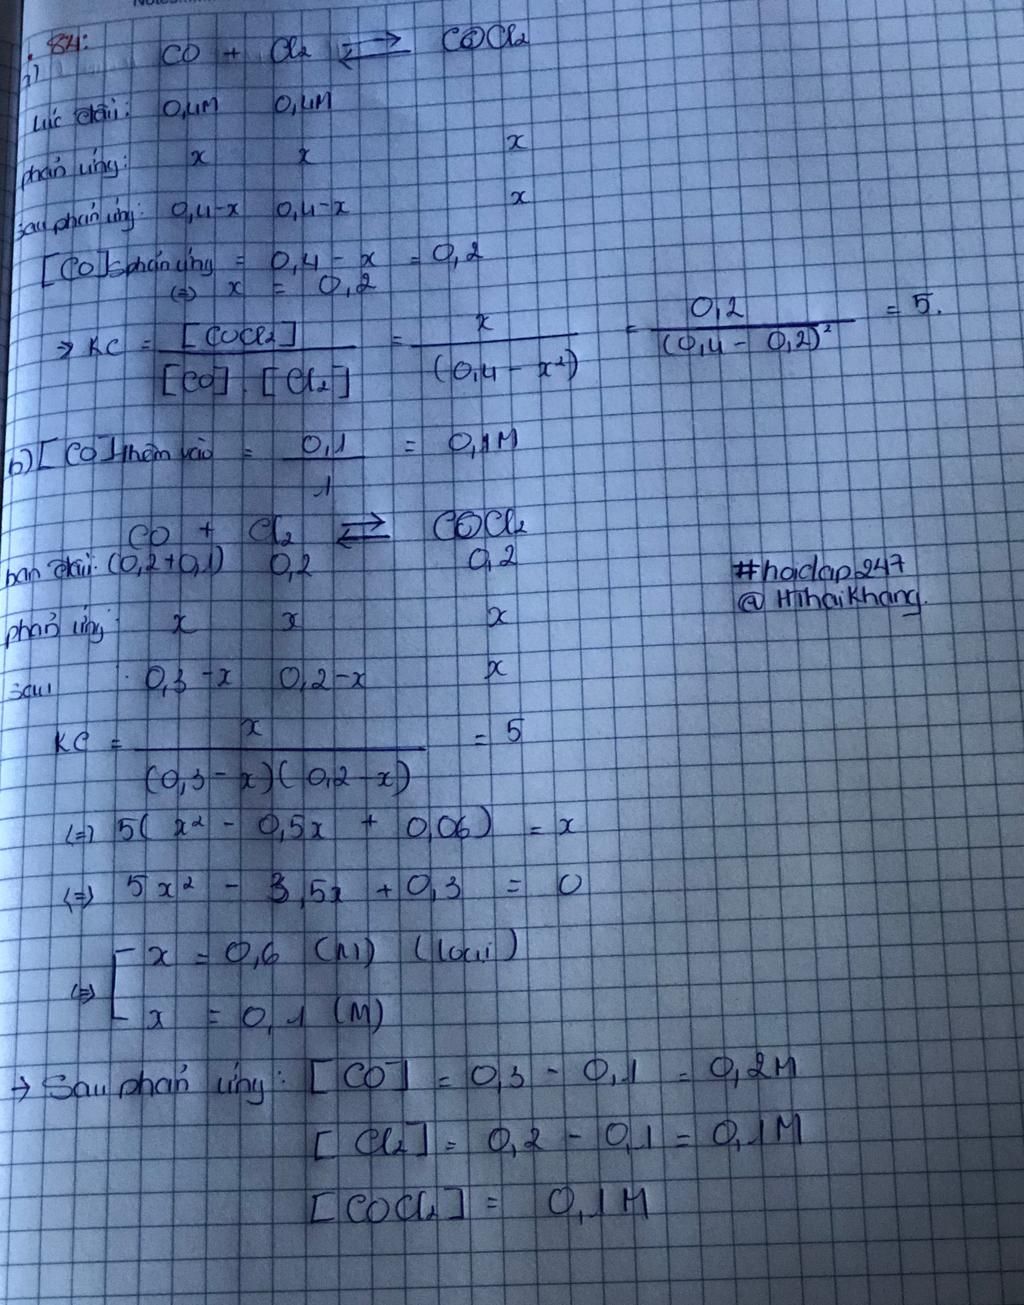 84:
a)
CO + Cl₂ ⇄ COCl₂
Lúc đầu: 0,4M 0,4M
phản ứng: x x x
sau phản ứng: 0,4-x 0,4-x x
[CO]sphản ứng = 0,4 - x = 0,2
(=) x = 0,2
→ KC = [COCl₂] / [CO] . [Cl₂] = x / (0,4 - x²) = 0,2 / (0,4 - 0,2)² = 5.
b) [CO] thêm vào = 0,1 / 1 = 0,1M
CO + Cl₂ ⇄ COCl₂
ban đầu: (0,2+0,1) 0,2 0,2
phản ứng x x x
sau : 0,3-x 0,2-x x
KC = x / (0,3-x)(0,2-x) = 5
(=) 5(x² - 0,5x + 0,06) = x
(=) 5x² - 3,5x + 0,3 = 0
(=) [ x = 0,6 (M) (loại)
x = 0,1 (M)
→ Sau phản ứng: [CO] = 0,3 - 0,1 = 0,2M
[Cl₂] = 0,2 - 0,1 = 0,1M
[COCl₂] = 0,1M
#hoidap247
@HThaiKhang.